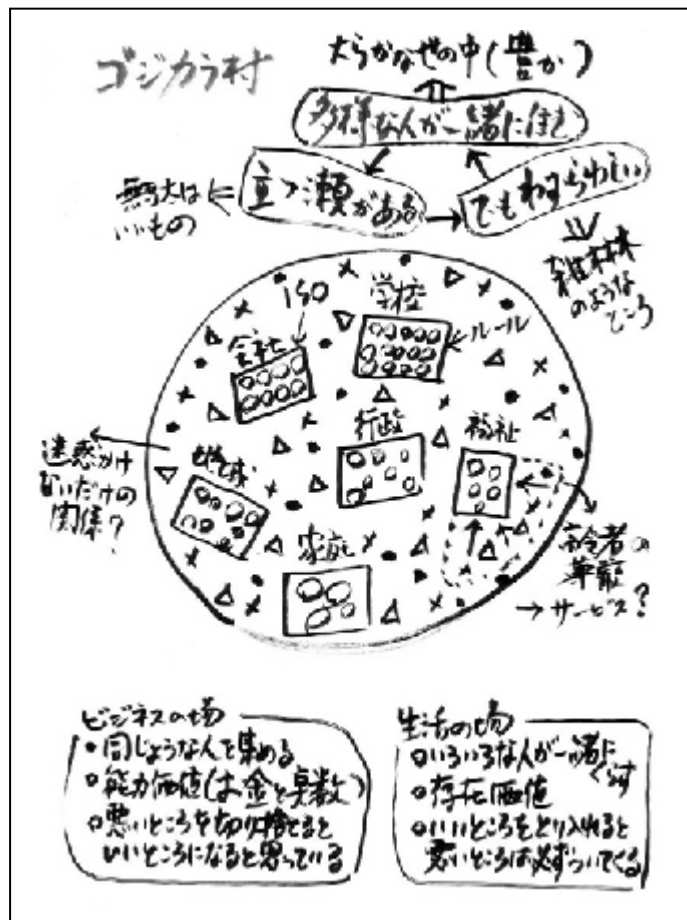 ゴジカラ村
大らかなせの中(豊か)
多様な人が一緒に住む
立つ瀬がある
でもわずらわしい
無駄は
いいもの
雑木林
のような
ところ
ISO
学校
会社
ルール
行政
福祉
地域
家庭
迷惑かけ
ないだけの
関係?
高齢者の
→サービス?
ビジネスの場
・同じような人を集める
・能力価値(お金と点数)
・悪いところを切り捨てると
いいところになると思っている
生活の場
・いろいろな人が一緒に
くらす
・存在価値
・いいところをとり入れると
悪いところは必ずついてくる